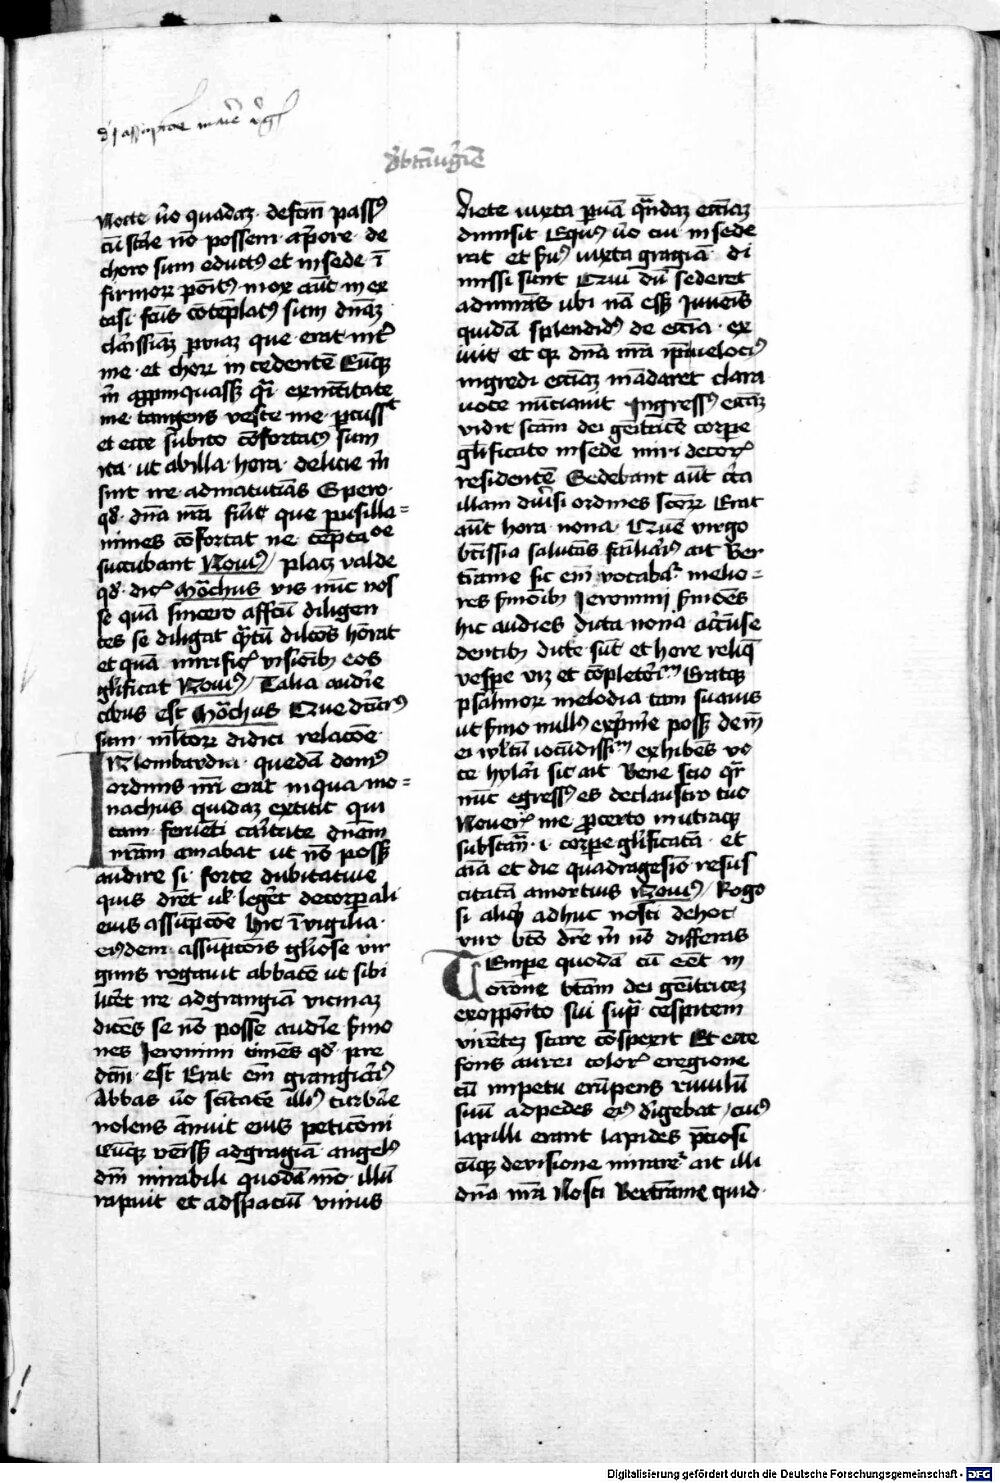 d' assūpcōe marie v'g'
d' b̄ta v'gīe
Nocte v̄o quadaʒ · defcm̄ passꝰ
cū stāe nō possem · a p̄ore · de
choro sum eductꝰ et in sede ī
firmoꝝ poītꝰ mox aūt in ex
tasi · fcūs cōtēplatꝰ sum dn̄aʒ
clarissīaʒ p̄viaʒ que · erat · int̄
me · et choꝝ incedentē Cūqꝫ
m̄ app̄inquassꝫ q̄i ex inc̄titate
me tangens veste me p̄cussit
et ecce subito cōfortatꝰ sum
ita · ut ab illa · hora · delicie m̄
sint ire · ad matutīas Spero ·
qđ · dn̄a nr̄a fūit que pusilla=
nimes cōfortat ne tēptacōe
succūbant Nouiꝰ / placʒ valde
qđ · dicꝭ Mōchus vis nūc nos
se quā sincero affcū diligen
tes se diligat q̄ntū dilcōs hōrat
et quā mirificꝭ visionibꝫ eos
gl̄ificat Nouiꝰ / Talia audīe
cibus est Mōchus Que dcūrꝰ
sum · ml̄toꝝ didici relacōe ·
IN lombardia · quedā domꝰ
ordinis nr̄i erat in qua · mo=
nachus quidaʒ extitit qui
tam · feruēti cāritate dn̄am
nr̄am amabat ut nō possꝫ
audire si · forte dubitatiue
quis dr̄et ul̄ · leḡet de corp̄ali
eius assūpcōe hic ī vigilia ·
eiꝰdem · assūpcōis gl̄iose vir
ginis rogauit abbatē ut sibi
licēt ire ad grangiā vicinaʒ
dicēs se nō posse audīe s̄mo
nes Jeronimi timēs qđ · pre
dcm̄ · est Erat em̄ grangiariꝰ
Abbas v̄o scītatē illiꝰ turbāe
nolens ānuit eius peticōni
Cūqꝫ vēissꝫ ad gragiā angelꝰ
dn̄i mirabili quodā mō · illū
rapuit et ad spaciū vnius
diete iuxta p̄uā q̄ndaʒ eccīaʒ
dimisit Equꝰ v̄o cui insede
rat et s̄uꝰ iuxta gragiā · di
missi sunt Qui dū sederet
admirās ubi nā essꝫ Juuēis
quidā splendidꝰ de eccīa · ex
iuit et qꝛ dn̄a nr̄a ip̄m velociꝰ
ingredi eccīaʒ mādaret clara
uoce nūciauit Ingressꝰ eccīaʒ
vidit scām dei geīt̄cē corpe
gl̄ificato in sede miri decorꝭ
residentē Sedebant aūt cīca
illam diūsi ordines scōꝝ Erat
aūt hora · nona · Quē virgo
b̄tissīa salutās fail̄iarꝰ ait Ber
trame sic em̄ vocabaꝛ melio=
res s̄monibꝫ Jeronimi s̄mōes
hic audies Dicta nona acc̄nse
dentibꝫ dicte sūt et hore reliq̄
vespe viʒ et cōpletoriū Eratqꝫ
psalmoꝝ melodia tam suauis
ut s̄mo nullꝰ exp̄me possꝫ dem̄
ei vl̄tū iocūdissīm exhibēs uo
ce hylari sic ait Bene scio qꝛ
nūc egressꝰ es de claustro tuo
Noueꝛ me p̄certo in utraqꝫ
substan̄ · i · corpe gl̄ificatā · et
aīa et die quadragesīo resus
citatā a mortuis Nouiꝰ / Rogo
si aliqd' adhuc nosti de hoc
viro b̄to dr̄e m̄ nō differas
TEmpe quodā cū eēt in
orōne b̄tam dei geīt̄cem
ex opp̄oito sui sup̄ cespitem
virētem stare cōspexit Et ecce
fons aurei colorꝭ e regione
cū impetu erūpens riuulū
suū ad pedes eiꝰ dirigebat / cuiꝰ
lapilli erant lapides p̄ciosi
Cūqꝫ de visione mirareꝛ ait illi
dn̄a nr̄a Nosti Bertrame quid ·
Digitalisierung gefördert durch die Deutsche Forschungsgemeinschaft - DFG